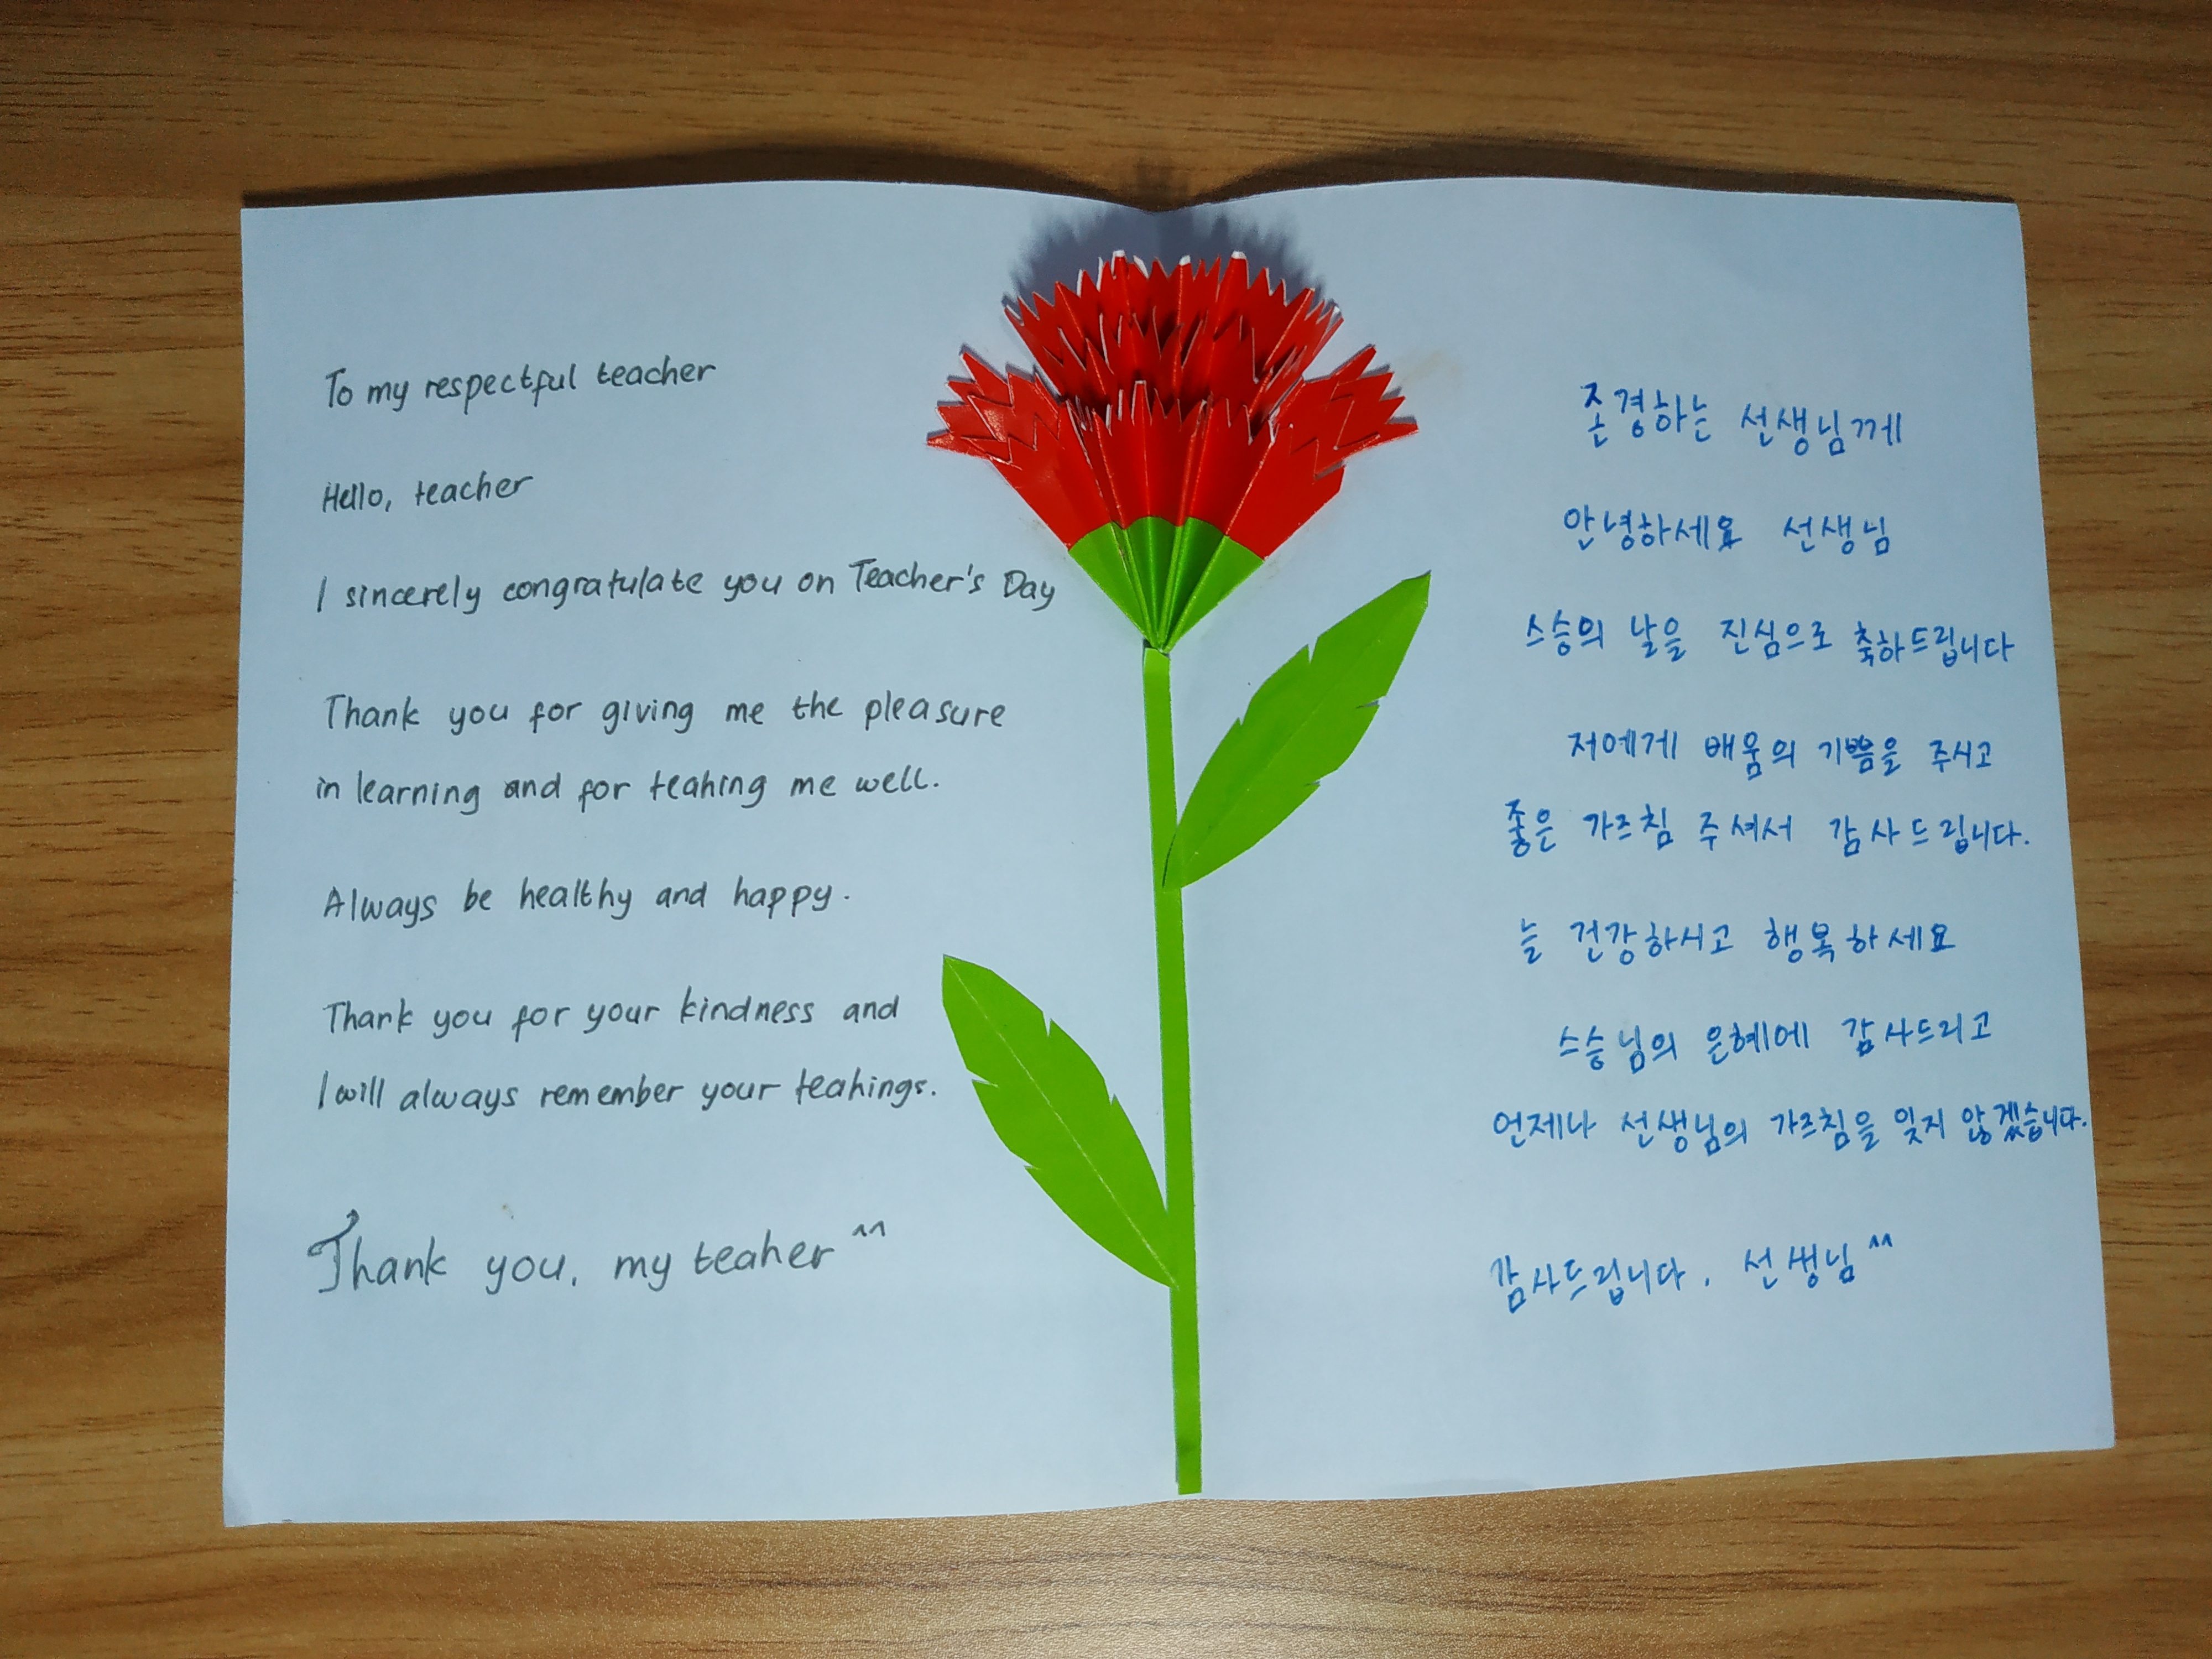 To my respectful teacher
Hello, teacher
I sincerely congratulate you on Teacher's Day
Thank you for giving me the pleasure
in learning and for teahing me well.
Always be healthy and happy.
Thank you for your kindness and
I will always remember your teahings.
Thank you, my teaher ^^
존경하는 선생님께
안녕하세요 선생님
스승의 날을 진심으로 축하드립니다
저에게 배움의 기쁨을 주시고
좋은 가르침 주셔서 감사드립니다.
늘 건강하시고 행복하세요
스승님의 은혜에 감사드리고
언제나 선생님의 가르침을 잊지 않겠습니다.
감사드립니다, 선생님^^